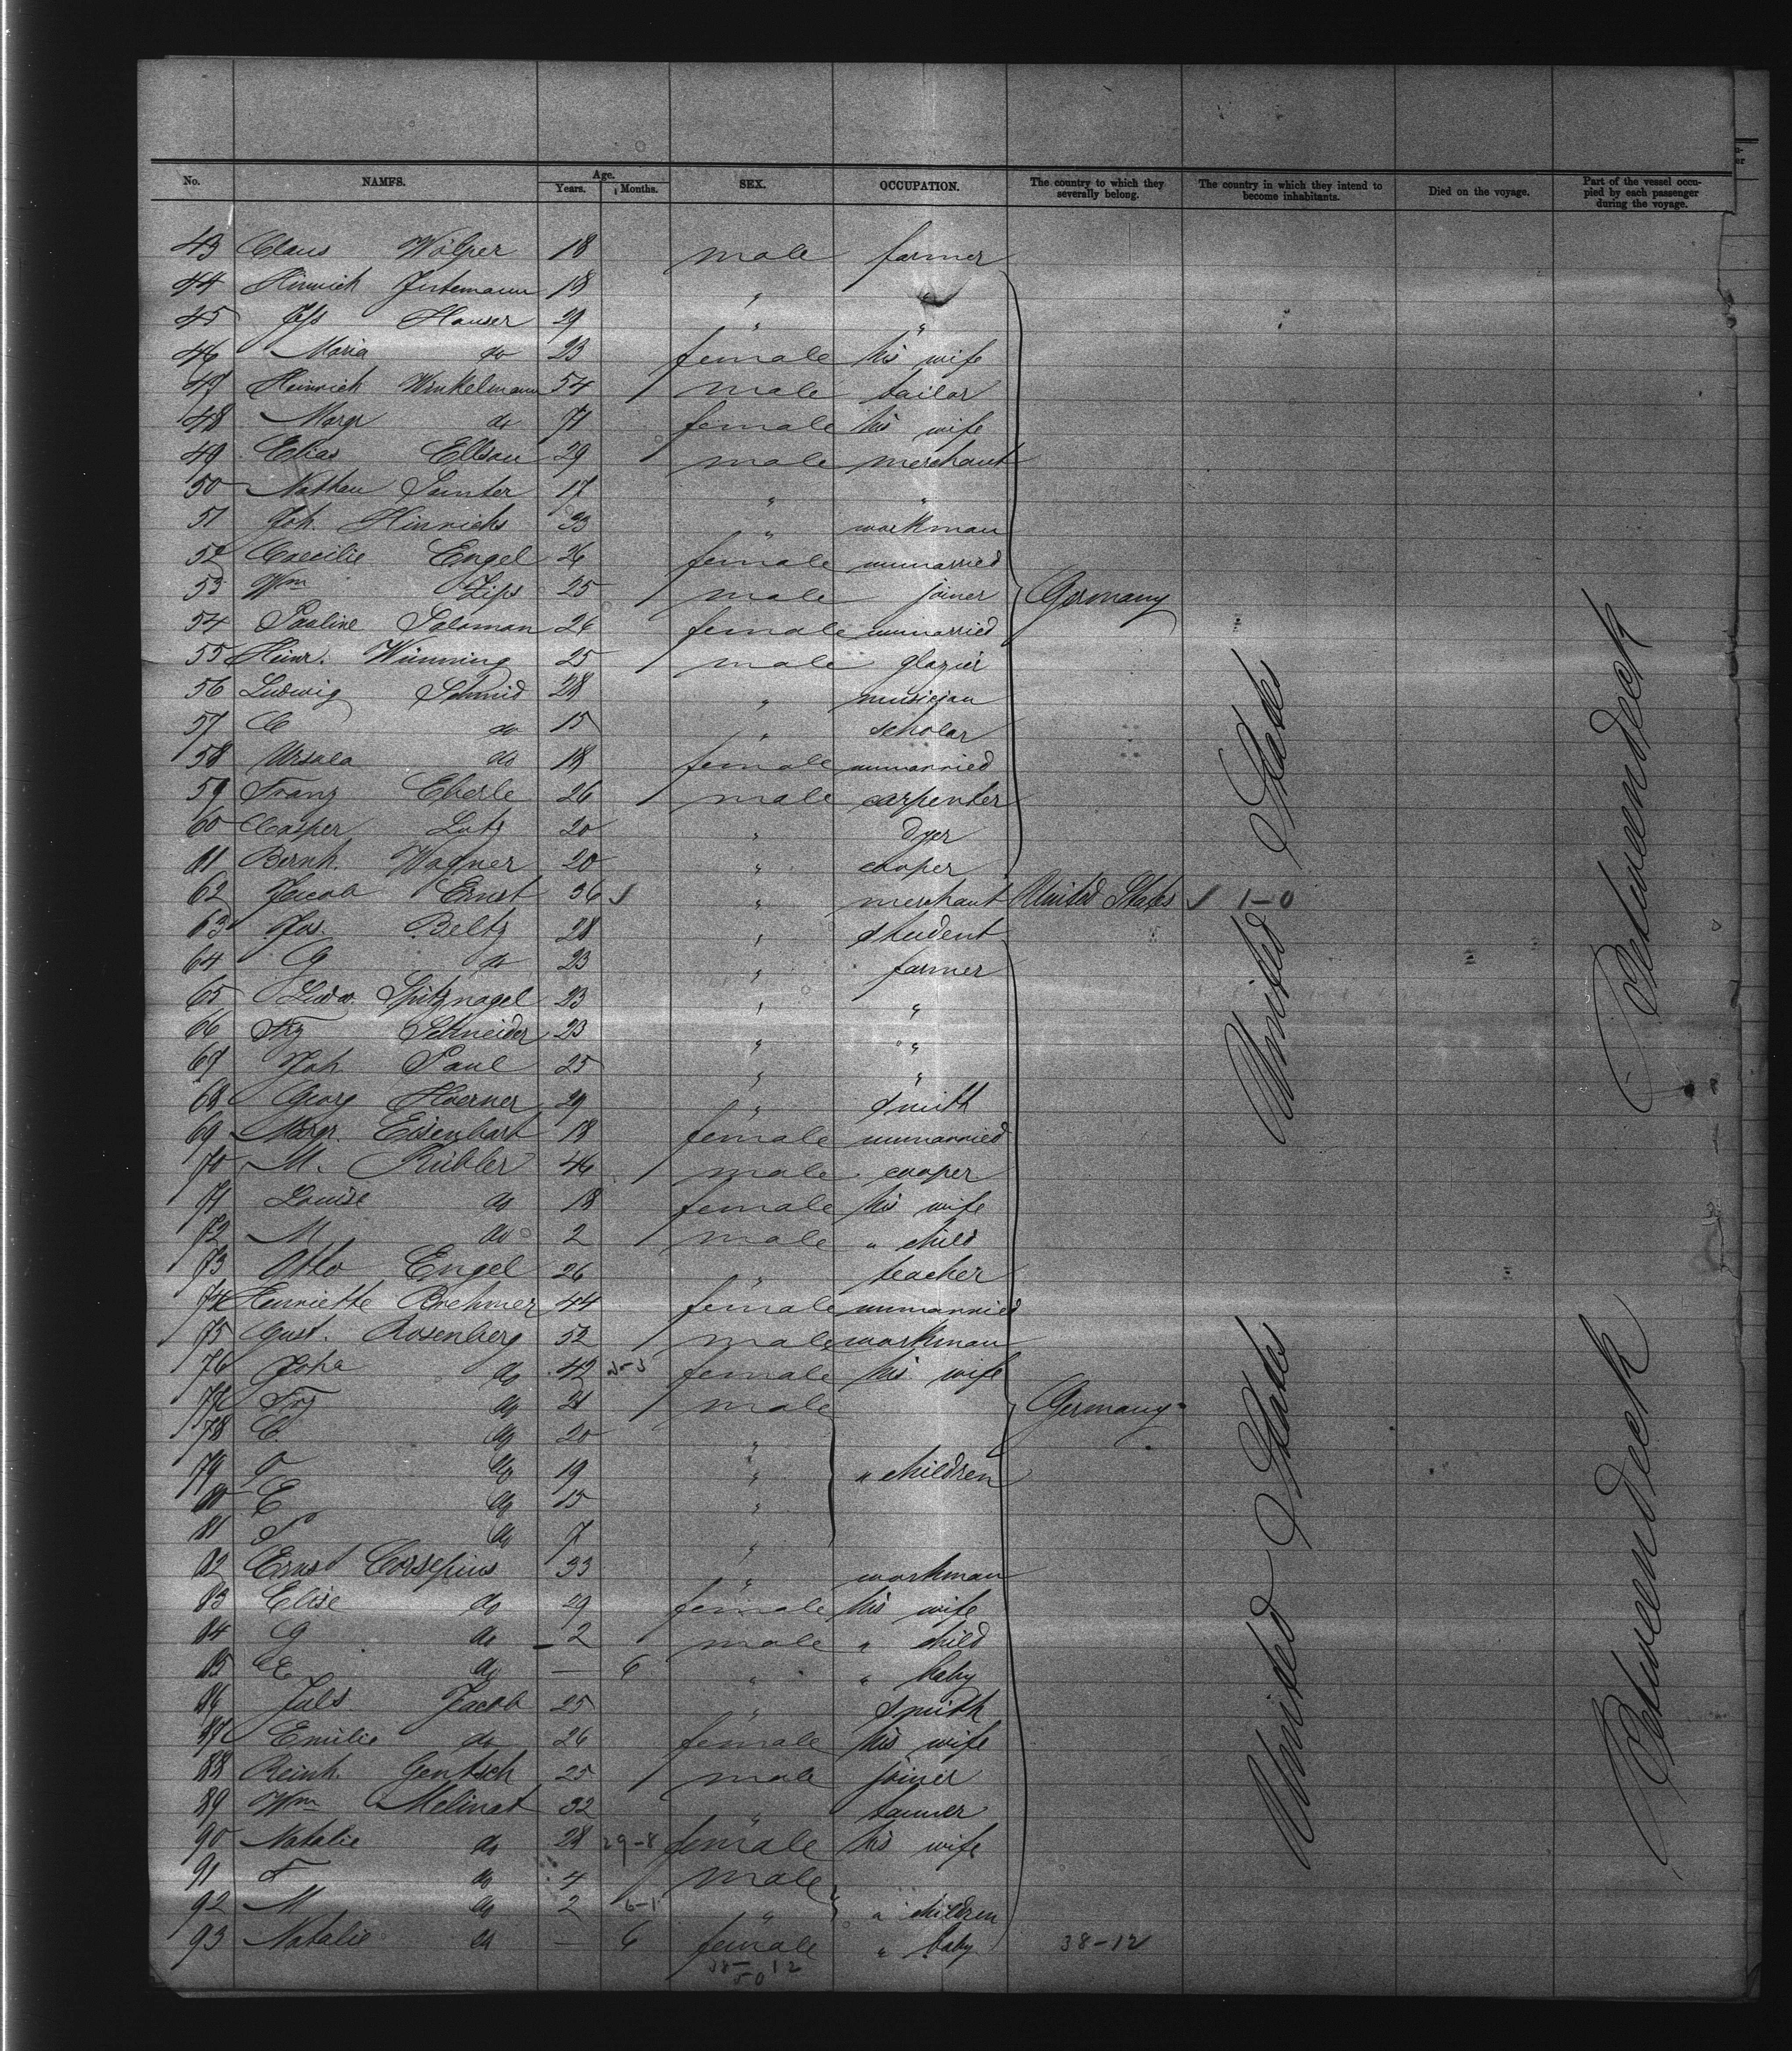 No. NAMES. Age. Years. Months. SEX. OCCUPATION. The country to which they severally belong. The country in which they intend to become inhabitants. Died on the voyage. Part of the vessel occupied by each passenger during the voyage.
43 Claus Wölper 18 male farmer
44 Hinrich 18 " "
45 Hauser 29 " "
46 Maria do 23 female his wife
47 Heinrich Winkelmann 54 male tailor
48 Margr do 71 female his wife
49 Elias Ellson 29 male merchant
50 Nathan Samter 17 " "
51 Joh. Hinrichs 33 " workman
52 Caecilie Engel 26 female unmarried
53 Wm Lips 25 male joiner Germany
54 Pauline Salomon 26 female unmarried
55 Heinr. Wünning 25 male glazier
56 Ludwig Schmid 28 " musician
57 C do 15 " scholar
58 Ursula do 18 female unmarried
59 Franz Eberle 26 male carpenter
60 Casper Lutz 20 " dyer
61 Bernh. Wagner 20 " cooper
62 Jacob Ernst 36 " merchant United States 1-0
63 Jos. Beltz 28 " student
64 G do 23 " farmer
65 Ludw. Spitznagel 23 " "
66 Frz Schneider 23 " "
67 Joh Paul 25 " "
68 Georg Hoerner 29 " smith
69 Margr. Eisenhart 18 female unmarried
70 M. Kübler 46 male cooper
71 Louise do 18 female his wife
72 M do 2 male " child
73 Otto Engel 26 " teacher
74 Henriette Brehmer 44 female unmarried
75 Gust. Rosenberg 52 male workman
76 Joha do 42 female his wife
77 Frz do 21 male Germany
78 C. do 20 "
79 do 19 " " children
80 E do 15 "
81 do 7 "
82 Ernst Corsepius 33 " workman
83 Elise do 29 female his wife
84 G do 2 male " child
85 E do — 6 " " baby
86 Juls Jacob 25 " smith
87 Emilie do 26 female his wife
88 Reinh. Gentsch 25 male joiner
89 Wm Melinat 32 " tanner
90 Natalie do 28 29-8 female his wife
91 F do 4 male
92 M do 2 6-1 " " children
93 Natalie do — 6 female " baby 38-12
38-12
50
United States
United States
Betweendeck
Betweendeck